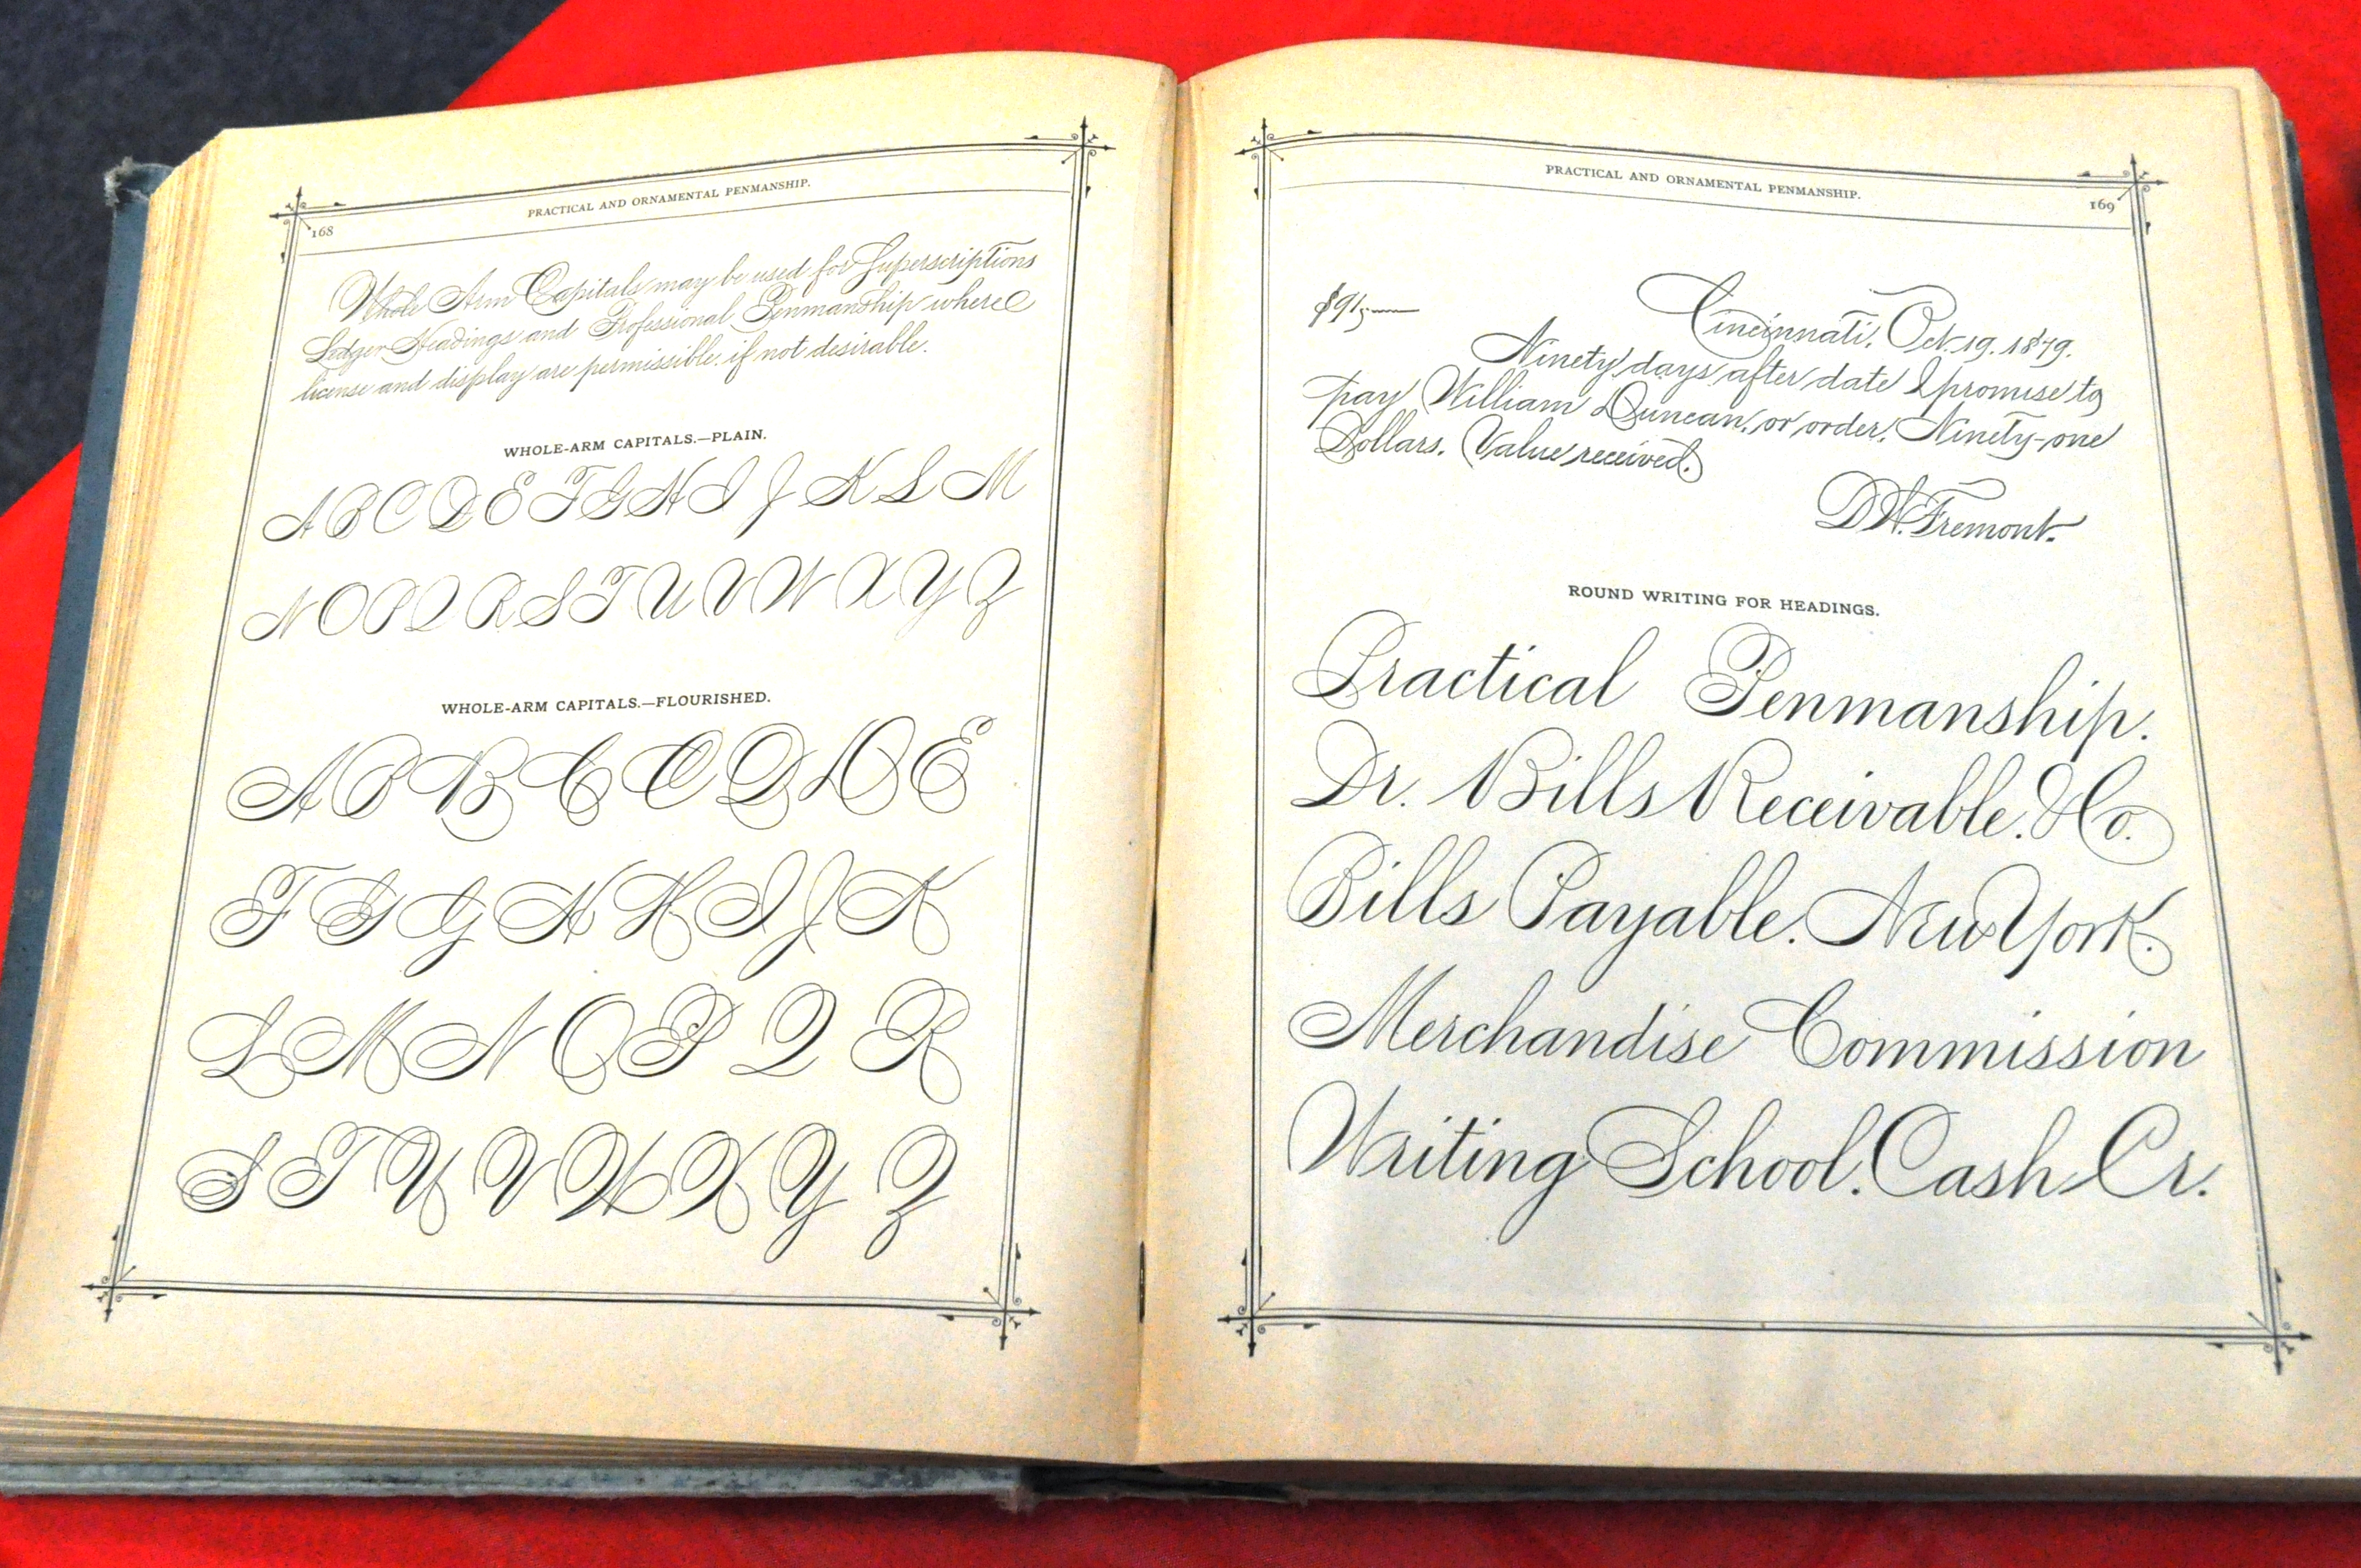 PRACTICAL AND ORNAMENTAL PENMANSHIP.
168
Whole Arm Capitals may be used for Superscriptions
Ledger Headings and Professional Penmanship where
license and display are permissible, if not desirable.
WHOLE-ARM CAPITALS.—PLAIN.
A B C D E F G H I J K L M
N O P Q R S T U V W X Y Z
WHOLE-ARM CAPITALS.—FLOURISHED.
A B B C C D D E
F G G H H I J K
L M N O P Q R
S T U V W X Y Z
PRACTICAL AND ORNAMENTAL PENMANSHIP.
169
$91.
Cincinnati, Oct. 19. 1879.
Ninety days after date I promise to
pay William Duncan, or order, Ninety-one
Dollars. Value received.
D. H. Fremont.
ROUND WRITING FOR HEADINGS.
Practical Penmanship.
Dr. Bills Receivable. & Co.
Bills Payable. New York.
Merchandise Commission
Writing School. Cash Cr.